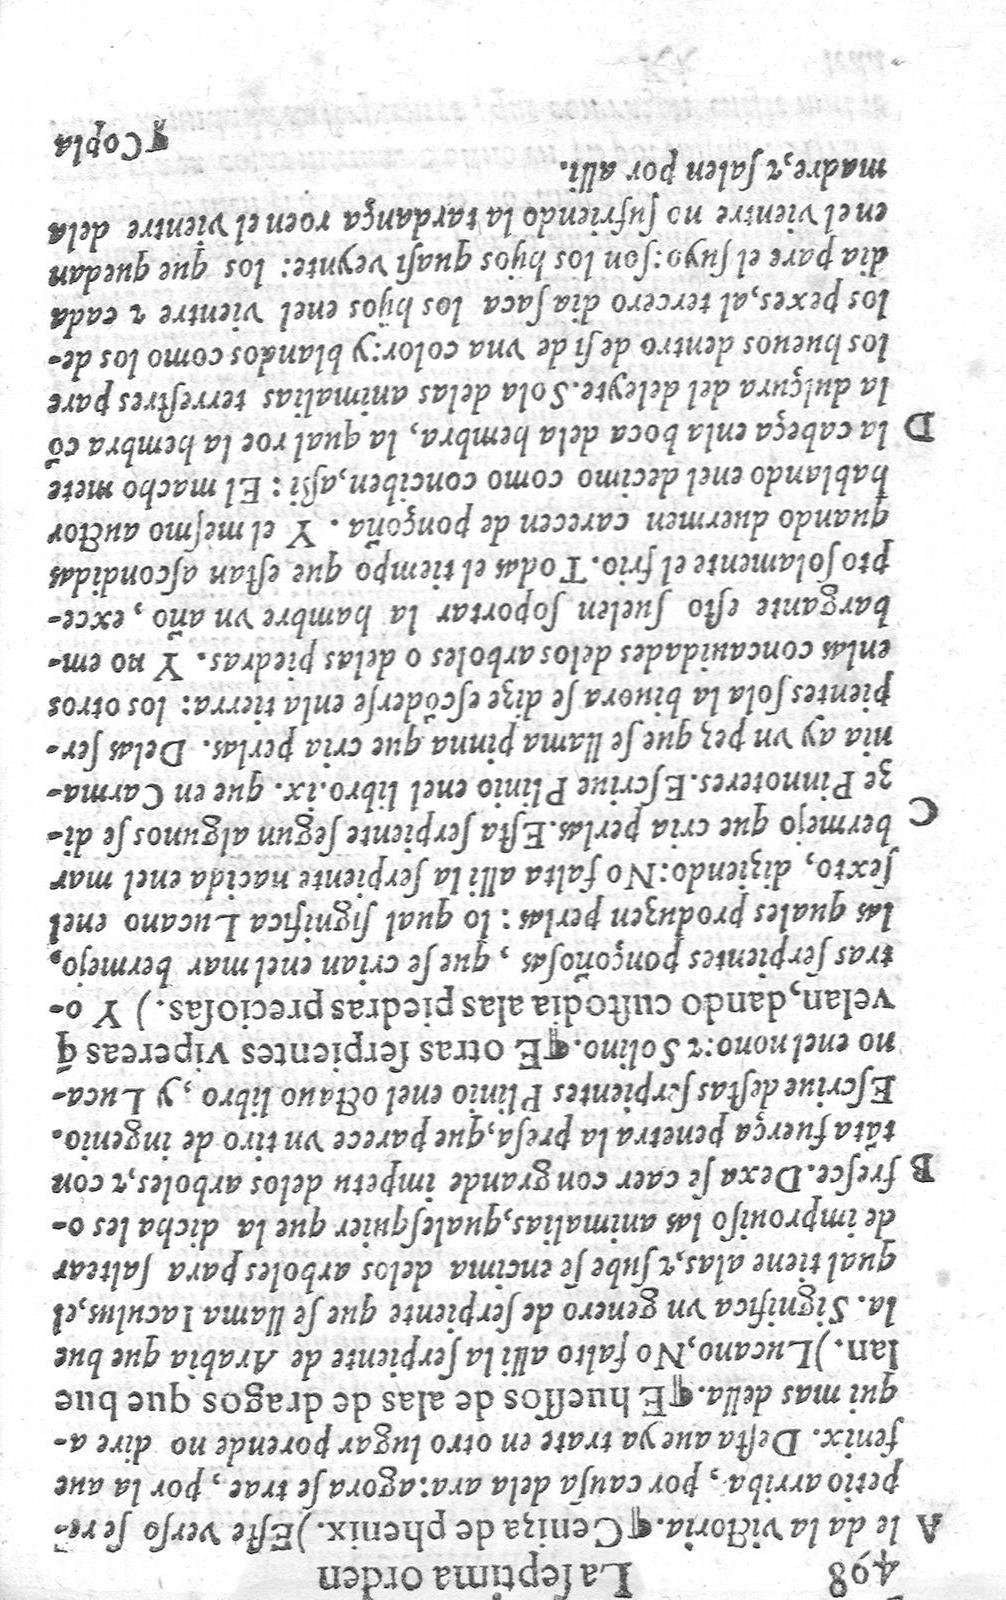 498 La septima orden
A le da la victoria.¶Ceniza de phenix.) Este verso se re-
petio arriba, por causa dela ara: agora se trae, por la aue
fenix. Desta aue ya trate en otro lugar porende no dire a-
qui mas della.¶E huessos de alas de dragos que bue
lan.) Lucano, No falto alli la serpiente de Arabia que bue
la. Significa vn genero de serpiente que se llama Iaculus, el
qual tiene alas, ⁊ sube se encima delos arboles para saltear
de improuiso las animalias, qualesquier que la dicha les o-
B fresce. Dexa se caer con grande impetu delos arboles, ⁊ con
tāta fuerça penetra la presa, que parece vn tiro de ingenio.
Escriue destas serpientes Plinio enel octauo libro, y Luca-
no enel nono: ⁊ Solino.¶E otras serpientes vipereas q̄
velan, dando custodia alas piedras preciosas.) Y o-
tras serpientes ponçoñosas, que se crian enel mar bermejo,
las quales produzen perlas: lo qual significa Lucano enel
sexto, diziendo: No falta alli la serpiente nacida enel mar
bermejo que cria perlas. Esta serpiente segun algunos se di-
C ze Pinnoteres. Escriue Plinio enel libro.ix. que en Carma-
nia ay vn pez que se llama pinna que cria perlas. Delas ser-
pientes sola la biuora se dize escōderse enla tierra: los otros
enlas concauidades delos arboles o delas piedras. Y no em-
bargante esto suelen soportar la hambre vn año, exce-
pto solamente el frio. Todas el tiempo que estan ascondidas
quando duermen carecen de ponçoña. Y el mesmo auctor
hablando enel decimo como conciben, assi: El macho mete
D la cabeça enla boca dela hembra, la qual roe la hembra cō
la dulçura del deleyte. Sola delas animalias terrestres pare
los hueuos dentro de si de vna color: y blandos como los de-
los pexes, al tercero dia saca los hijos enel vientre ⁊ cada
dia pare el suyo: son los hijos quasi veynte: los que quedan
enel vientre no sufriendo la tardança roen el vientre dela
madre, ⁊ salen por alli.
¶Copla